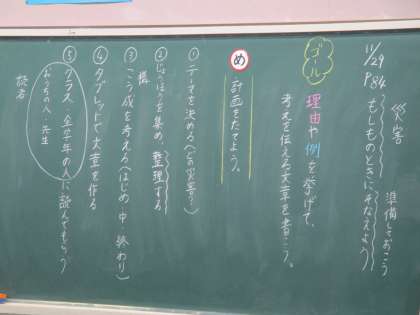 11/29
P84
災害
もしものときにそなえよう
準備しておこう
ゴール
理由や例を挙げて、
考えを伝える文章を書こう。
め
計画をたてよう。
① テーマを決める(どの災害?)
② じょうほうを集め、整理する
③ こう成を考える(はじめ・中・終わり)
④ タブレットで文章を作る
⑤ クラス、全学年の人に読んでもらう
おうちの人・先生
読者